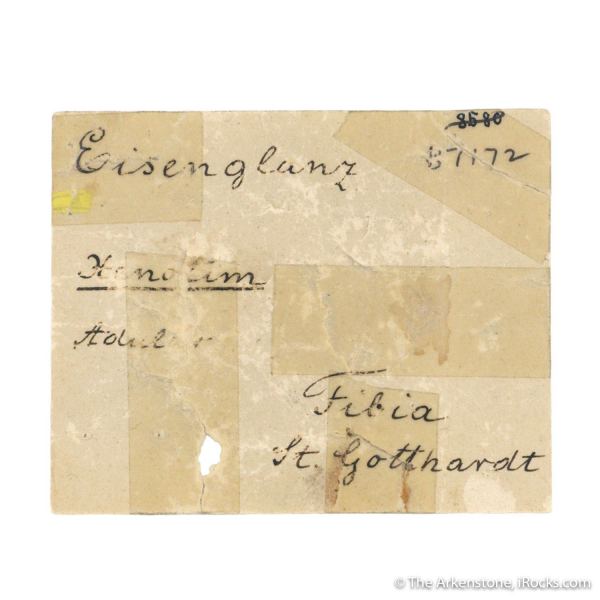 8580
B7172
Eisenglanz
Xenotim
Adular
Fibia
St. Gotthardt
© The Arkenstone, iRocks.com